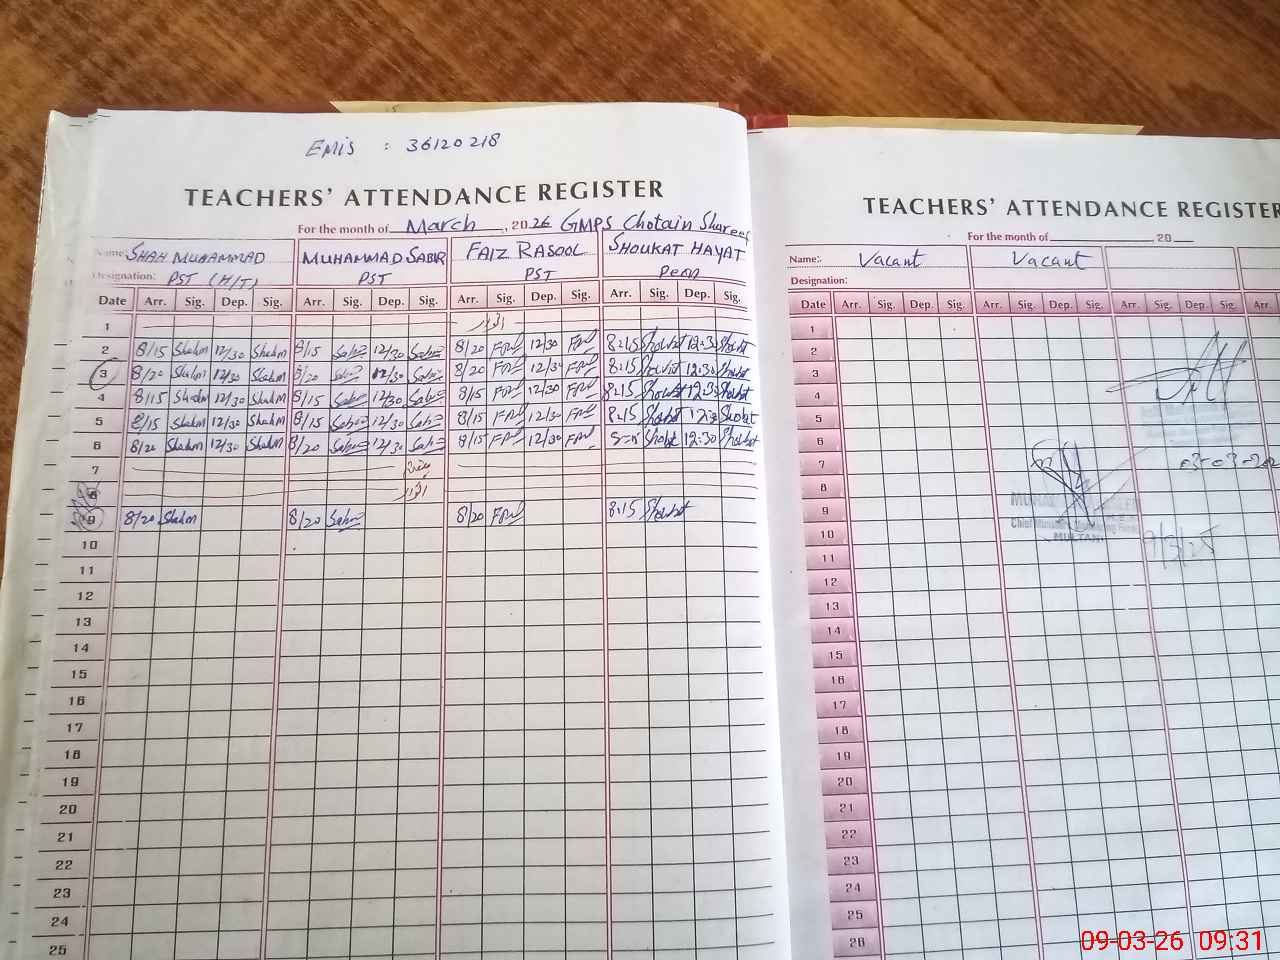 EMIS : 36120218
TEACHERS' ATTENDANCE REGISTER
For the month of March, 2026 GMPS Chotain Shareef
Name: SHAH MUHAMMAD MUHAMMAD SABIR FAIZ RASOOL SHOUKAT HAYAT
Designation: PST (H/T) PST PST Peon
Date Arr. Sig. Dep. Sig. Arr. Sig. Dep. Sig. Arr. Sig. Dep. Sig. Arr. Sig. Dep. Sig.
1 اتوار
2 8/15 Shahm 12/30 Shahm 8/15 Sabir 12/30 Sabir 8/20 12/30 8:15 Showkt 12:30 Showkt
3 8/20 Shahm 12/30 Shahm 8/20 Sabir 12/30 Sabir 8/20 12/30 8:15 Showkt 12:30 Showkt
4 8/15 Shahm 12/30 Shahm 8/15 Sabir 12/30 Sabir 8/15 12/30 8:15 Showkt 12:30 Showkt
5 8/15 Shahm 12/30 Shahm 8/15 Sabir 12/30 Sabir 8/15 12/30 8:15 Showkt 12:30 Showkt
6 8/20 Shahm 12/30 Shahm 8/20 Sabir 12/30 Sabir 8/15 12/30 Showkt 12:30 Showkt
7 ہفتہ
8 اتوار
9 8/20 Shahm 8/20 Sabir 8/20 8:15 Showkt
10
11
12
13
14
15
16
17
18
19
20
21
22
23
24
25
TEACHERS' ATTENDANCE REGISTER
For the month of 20
Name: Vacant Vacant
Designation:
Date Arr. Sig. Dep. Sig. Arr. Sig. Dep. Sig. Arr. Sig. Dep. Sig. Arr.
1
2
3
4
5
6
7 03-03-202
8
9
10 Chief Minister's Monitoring
MULTAN
11
12
13
14
15
16
17
18
19
20
21
22
23
24
25
26
09-03-26 09:31